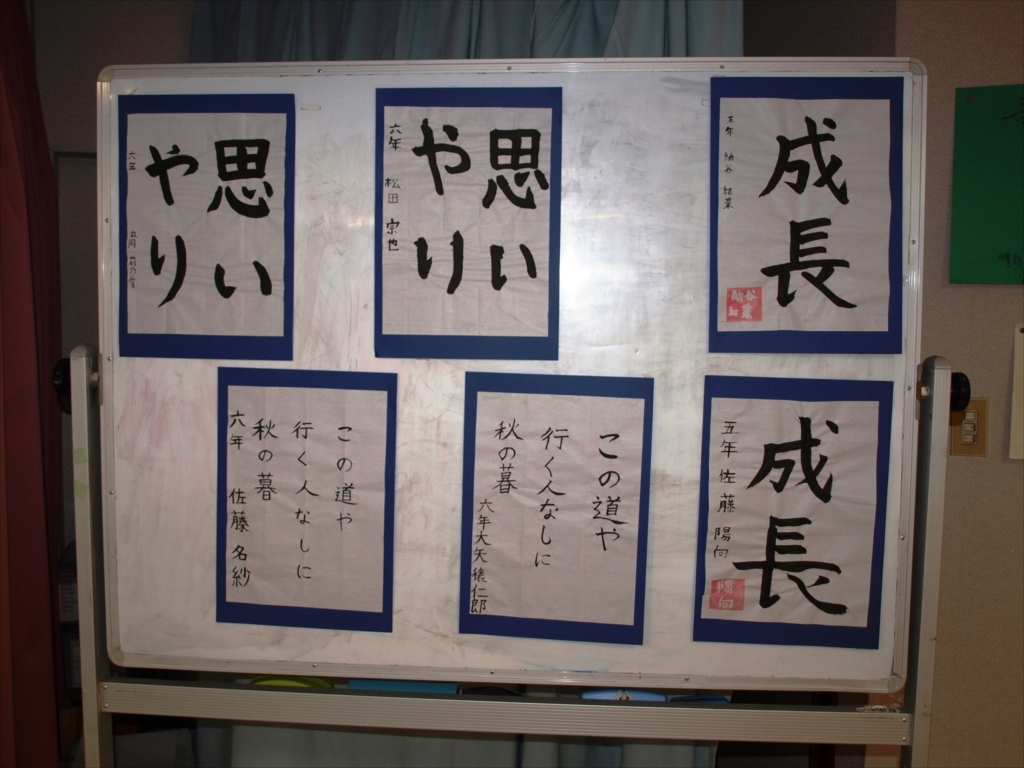 思い
やり
六年
思い
やり
六年 松田 宗也
成長
五年
この道や
行く人なしに
秋の暮
六年 佐藤 名紗
この道や
行く人なしに
秋の暮
六年大矢 仁郎
成長
五年 佐藤 陽向
陽向